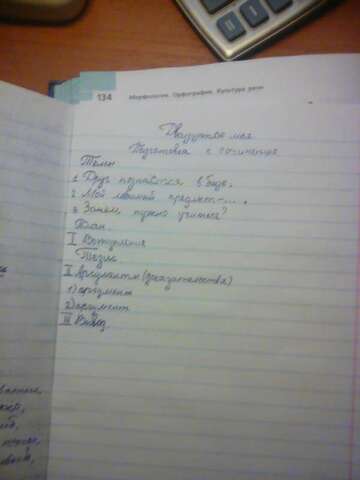 134 Морфология. Орфография. Культура речи
Двадцатое мая
Подготовка к сочинению
Темы
1. Друг познаётся в беде.
2. Мой любимый предмет-....
3. Зачем нужно учиться?
План.
I Вступление
Тезис
II Аргументы (доказательства)
1) аргумент
2) аргумент
III Вывод